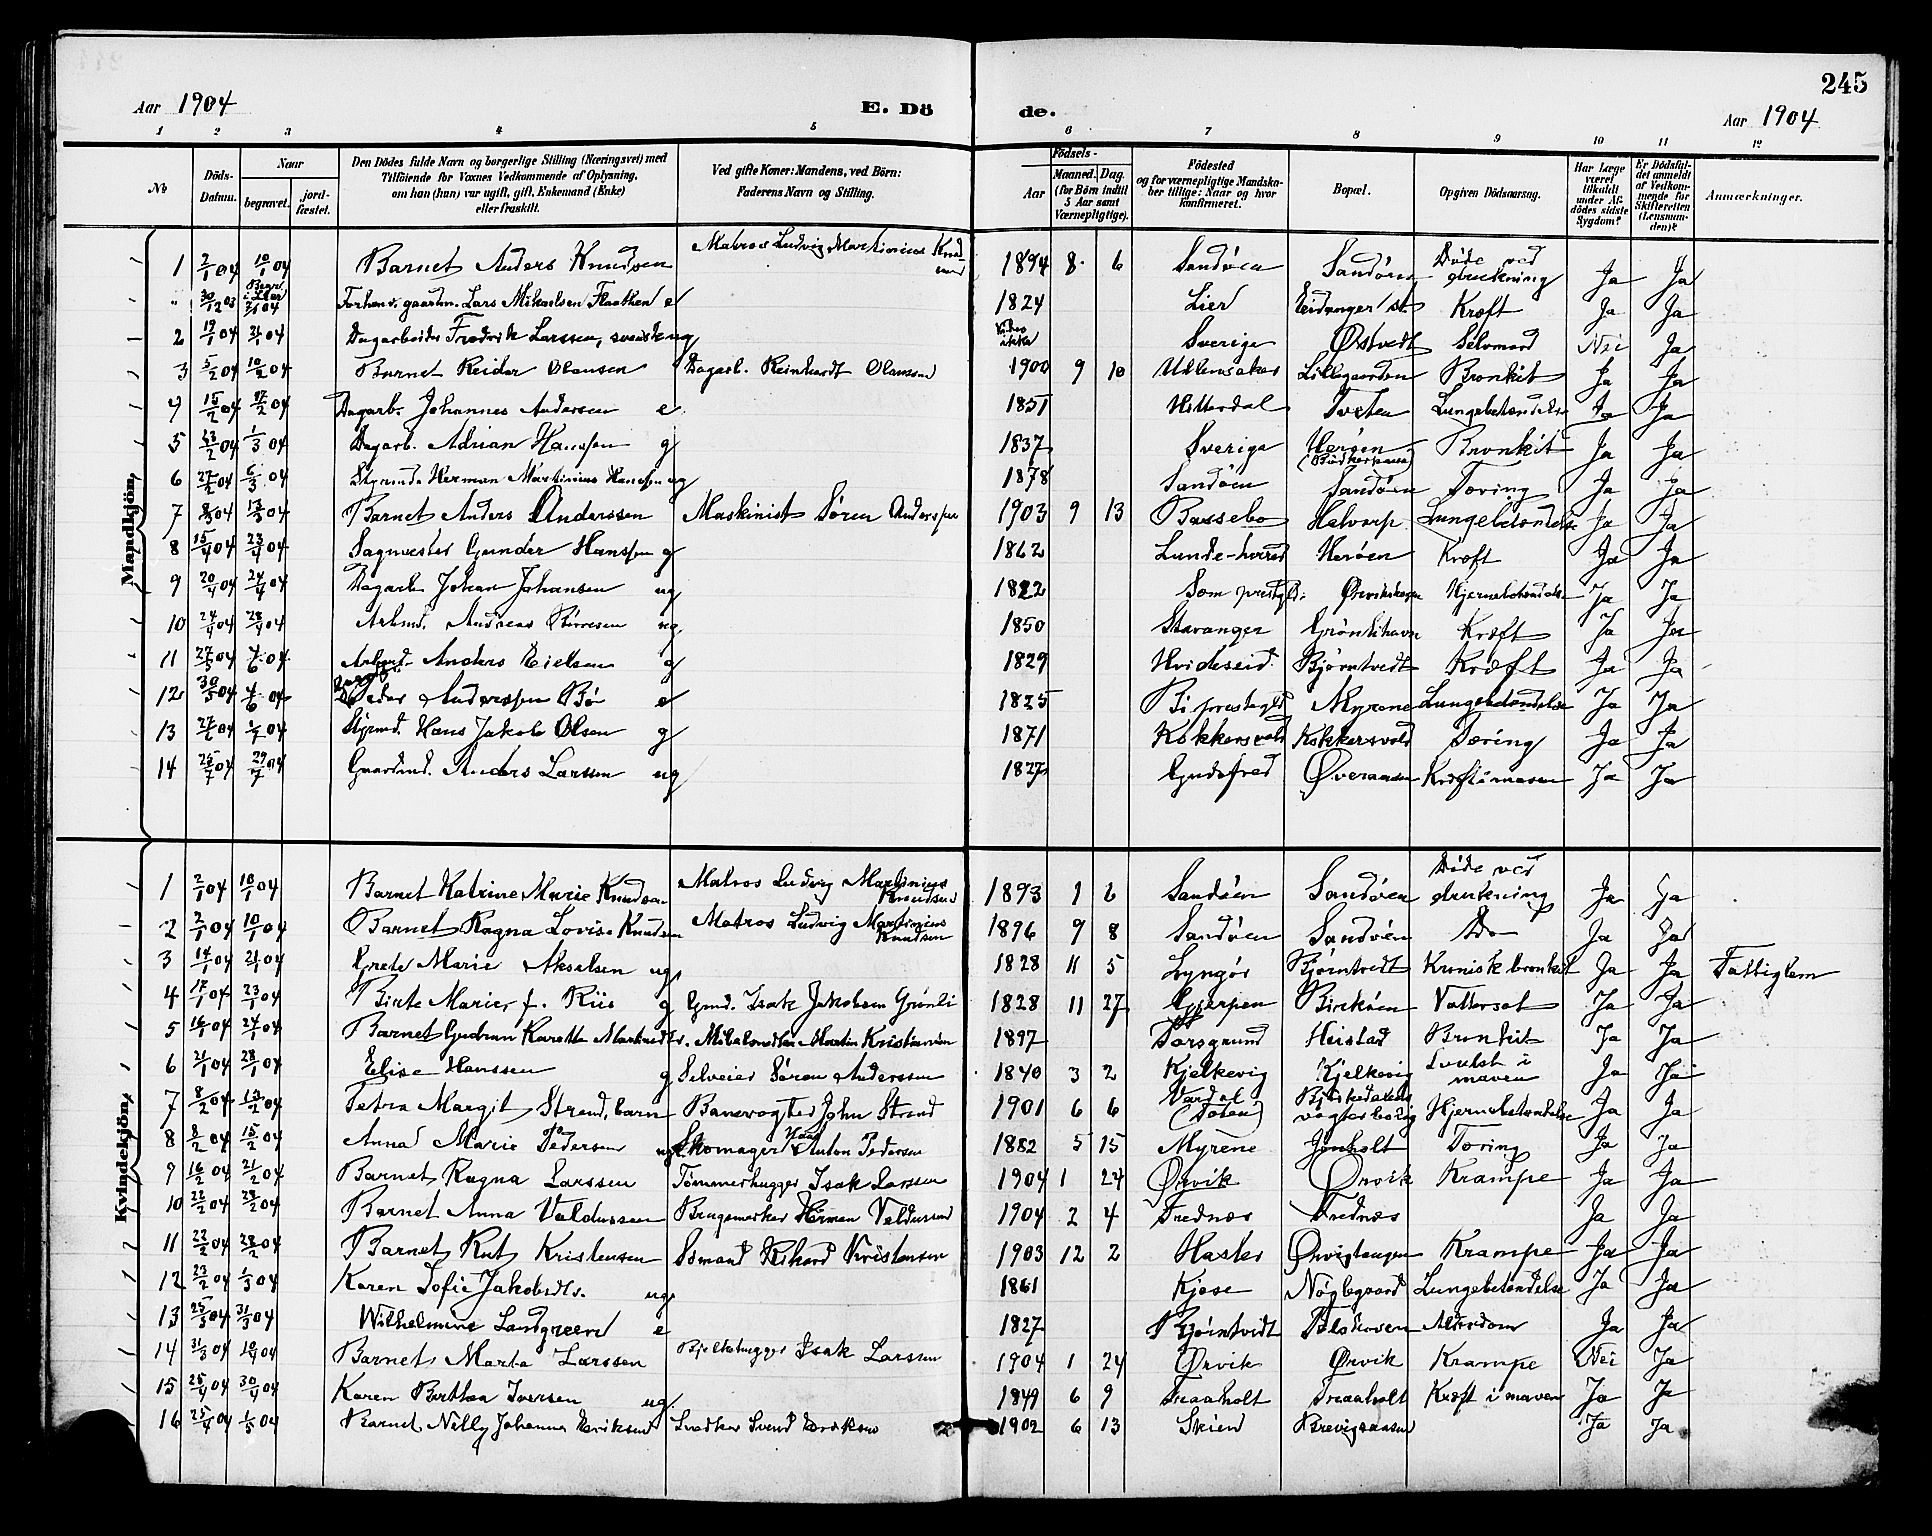 245
Aar 1904 E. Dö de. Aar 1904
1 2 3 4 5 6 7 8 9 10 11 12
No Döds-Datum. Naar begravet. jord-fæstet. Den Dödes fulde Navn og borgerlige Stilling (Næringsvei) med Tilföiende for Voxnes Vedkommende af Oplysning, om han (hun) var ugift, gift, Enkemand (Enke) eller fraskilt. Ved gifte Koner: Mandens, ved Börn: Faderens Navn og Stilling. Födsels- Aar Maaned. Dag. (for Börn indtil 5 Aar samt Værnepligtige). Födested og for værnepligtige Mandska-ber tillige: Naar og hvor konfirmeret. Bopæl. Opgiven Dödsaarsag. Har Læge været tilkaldt under Af-dödes sidste Sygdom? Er Dödsfal-det anmeldt af Vedkom-mende for Skifteretten (Lensman-den)? Anmærkninger.
Mandkjön.
1 2/1 04 10/1 04 Barnet Anders Knudsen Matros Ludvig Martinius Knudsen 1894 8 6 Sandöen Sandöen Döde ved drukning Ja Ja
" 30/12 03 Forhenv. gaardm. Lars Mikaelsen Flaathen e 1824 Lier Eidanger st. Kræft Ja Ja
2 19/1 04 21/1 04 Dagarbeider Fredrik Larssen, svensk ug Vides ikke Sverige Østvedt Selvmord Nei Ja
3 5/2 04 10/2 04 Barnet Reidar Olausen Dagarb. Reinhardt Olaussen 1900 9 10 Ullensaker Lillegaarden Bronkit Ja Ja
4 15/2 04 17/2 04 Dagarb. Johannes Andersen e 1851 Hitterdal Tveten Lungebetændelse Ja Ja
5 23/2 04 1/3 04 Dagarb. Adrian Hanssen g 1837 Sverige Herøen Bronkit Ja Ja
6 27/2 04 6/3 04 Styrmd. Herman Martinius Hanssen ug 1878 Sandöen Sandöen Tæring Ja Ja
7 8/3 04 13/3 04 Barnet Anders Anderssen Maskinist Sören Anderssen 1903 9 13 Bassebo Halvarp Lungebetændelse Ja Ja
8 15/4 04 23/4 04 Sagmester Gunder Hanssen g 1862 Lunde-herred Herøen Kræft Ja Ja
9 20/4 04 24/4 04 Dagarb. Johan Johansen ug 1882 Ørvikskogen Hjernebetændels. Ja Ja
10 24/4 04 28/4 04 Arbmd. Andreas Börresen ug. 1850 Stavanger Grönlihavn Kræft Ja Ja
11 27/5 04 4/6 04 Arbmd. Anders Eielsen g 1829 Hvideseid Bjørntvedt Kræft Ja Ja
12 30/5 04 4/6 04 Peder Anderssen Bö e 1825 Bö prestegjd Myrene Lungebetændelse Ja Ja
13 04 04 Styrmd. Hans Jakob Olsen g 1871 Kokkersvold Kokkersvold Tæring Ja Ja
14 25/7 04 29/7 04 Gaardmd. Anders Larssen ug 1827 Øveraasen Kræft i maven Ja Ja
Kvindekjön.
1 2/1 04 10/1 04 Barnet Katrine Marie Knudsen Matros Ludvig Martinius Knudsen 1893 1 6 Sandöen Sandöen Döde ved drukning Ja Ja
2 2/1 04 10/1 04 Barnet Ragna Lovise Knudsen Matros Ludvig Martinius Knudsen 1896 9 8 Sandöen Sandöen Do Ja Ja
3 14/1 04 21/1 04 Grete Marie Akselsen ug. 1828 11 5 Lyngör Bjørntvedt Kronisk bronkit Ja Ja Fattiglem
4 17/1 04 23/1 04 Birte Marie, f. Riis g Gmd. Isak Jakobsen Grönli 1828 11 27 Gjerpen Birköen Vattersot Ja Ja
5 16/1 04 24/1 04 Barnet Gudrun Karotte Martinsdtr. Martin Kristiansen 1897 Porsgrund Heistad Bronkit Ja Ja
6 21/1 04 28/1 04 Elise Hanssen g Selveier Sören Anderssen 1840 3 2 Kjelkevig Kjelkevig Svulst i maven Ja Ja
7 8/2 04 13/2 04 Petra Margit Strand, barn Banevogter John Strand 1901 6 6 Vardal (Toten) vogterbolig Hjernebetændelse Ja Ja
8 8/2 04 15/2 04 Anna Marie Pedersen ug Skomager Anton Pedersen 1882 5 15 Myrene Jønholt Tæring Ja Ja
9 16/2 04 21/2 04 Barnet Ragna Larssen Tømmerhugger Isak Larssen 1904 1 24 Ørvik Ørvik Krampe Ja Ja
10 22/2 04 28/2 04 Barnet Anna Valdussen Herman Valdussen 1904 2 4 Trednæs Trednæs Ja Ja
11 22/2 04 28/2 04 Barnet Rut Kristensen Rikard Kristensen 1903 12 2 Hasler Ørvigtangen Krampe Ja Ja
12 23/2 04 1/3 04 Karen Sofie Jakobsdtr. ug. 1861 Kjose Nøglegaard Lungebetændelse Ja Ja
13 25/3 04 31/3 04 Wilhelmine Landgreen e 1827 Bjørntvedt Alderdom Ja Ja
14 31/3 04 10/4 04 Barnet Marta Larssen Bjelkehugger Isak Larssen 1904 1 24 Ørvik Ørvik Krampe Nei Ja
15 25/4 04 30/4 04 Karen Berthea Iversen ug. 1849 6 9 Traaholt Traaholt Kræft i maven Ja Ja
16 25/4 04 1/5 04 Barnet Nelly Johanna Eriksen Svend Eriksen 1902 6 13 Skien Brevigsaasen Ja Ja